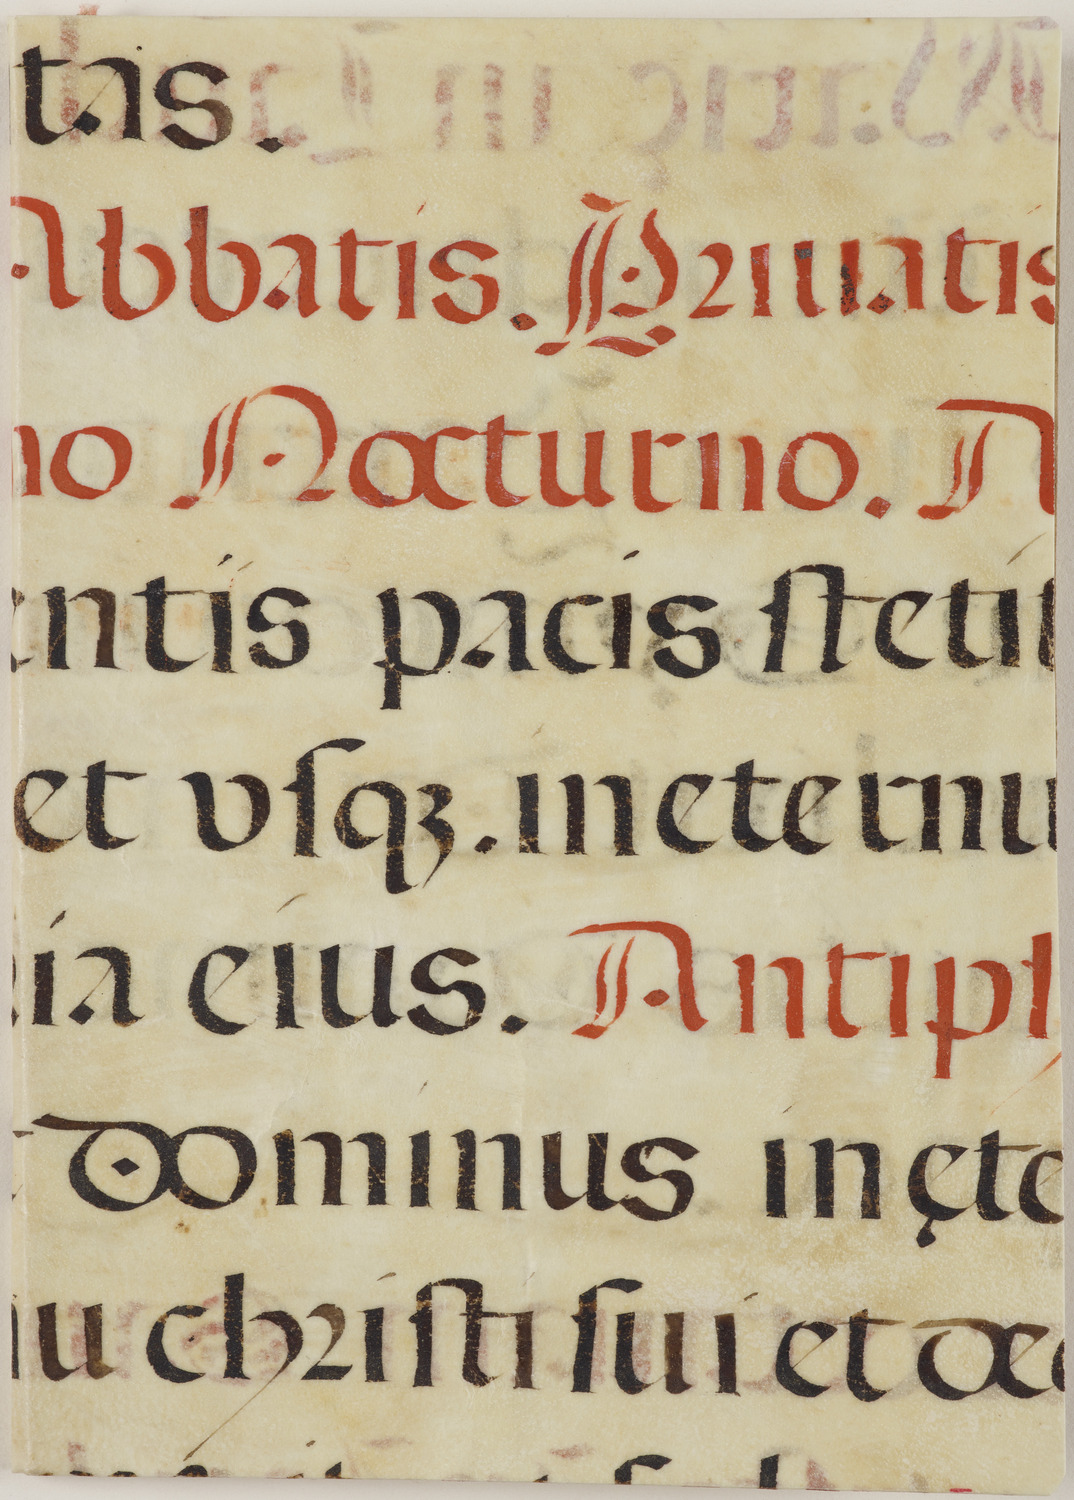 tas.
Abbatis. Priuatis
no Nocturno. N
entis pacis ſtetit
et vſqꝫ. in eternu
ia eius. Antiph
dominus in ęte
nu chriſti ſui et de